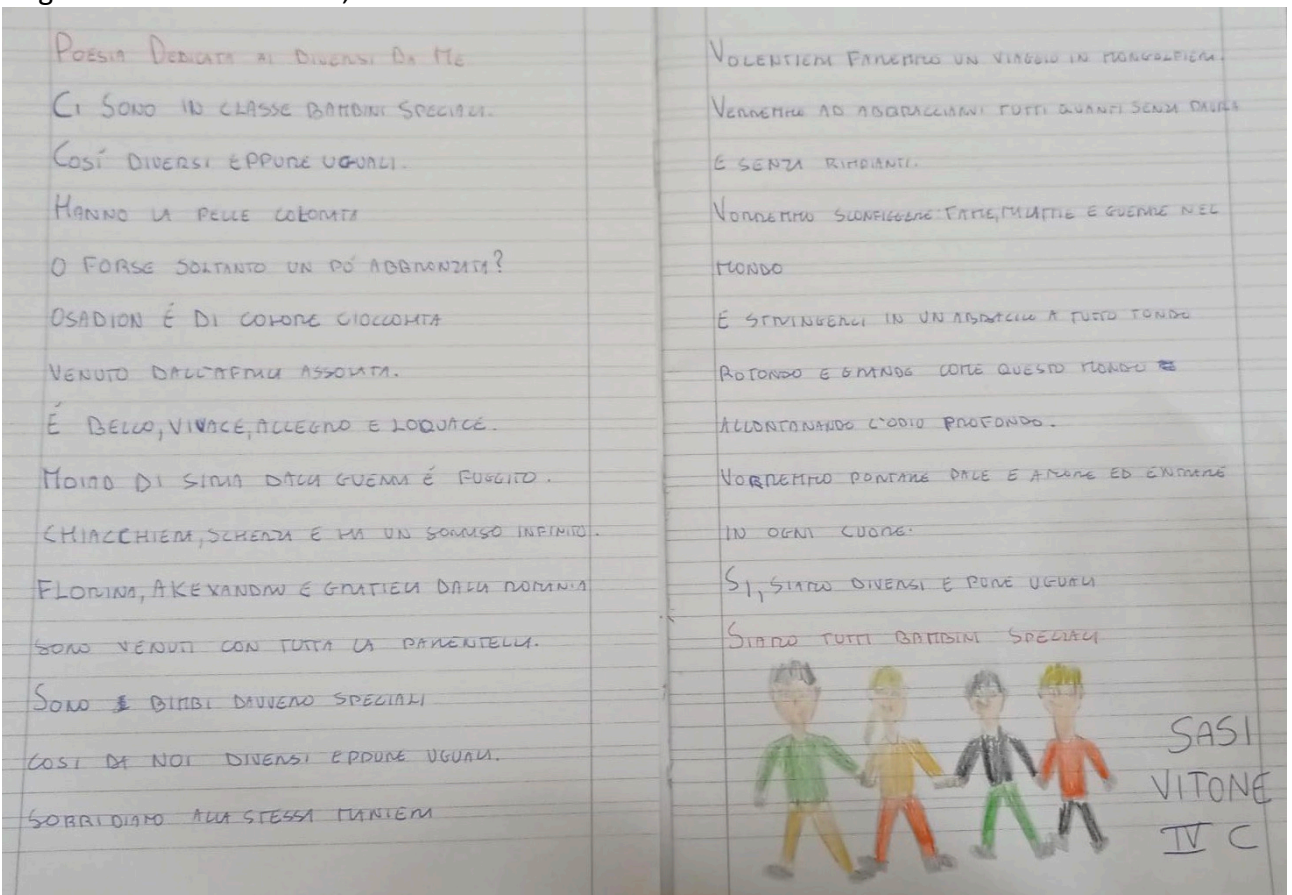 POESIA DEDICATA AI DIVERSI DA ME
CI SONO IN CLASSE BAMBINI SPECIALI.
COSÍ DIVERSI EPPURE UGUALI.
HANNO LA PELLE COLORATA
O FORSE SOLTANTO UN PÓ ABBRONZATA?
OSADION É DI COLORE CIOCCOLATA
VENUTO DALL'AFRICA ASSOLATA.
É BELLO, VIVACE, ALLEGRO E LOQUACE.
DI SIRIA DALLA GUERRA É FUGGITO.
CHIACCHIERA, SCHERZA E HA UN SORRISO INFINITO.
FLORINA, AKEXANDRU E GRATIELA DALLA ROMANIA
SONO VENUTI CON TUTTA LA PARENTELLA.
SONO BIMBI DAVVERO SPECIALI
COSI DA NOI DIVERSI EPPURE UGUALI.
SORRIDIAMO ALLA STESSA MANIERA
VOLENTIERI FAREMMO UN VIAGGIO IN MONGOLFIERA.
VERREMMO AD ABBRACCIARVI TUTTI QUANTI SENZA
E SENZA RIMPIANTI.
VORREMMO SCONFIGGERE: FAME, MALATTIE E GUERRE NEL
MONDO
E STRINGERCI IN UN ABBRACCIO A TUTTO TONDO
ROTONDO E GRANDE COME QUESTO MONDO
ALLONTANANDO L'ODIO PROFONDO.
VORREMMO PORTARE PACE E AMORE ED ENTRARE
IN OGNI CUORE.
SI, SIAMO DIVERSI E PURE UGUALI
SIAMO TUTTI BAMBINI SPECIALI
SASI
VITONE
IV C